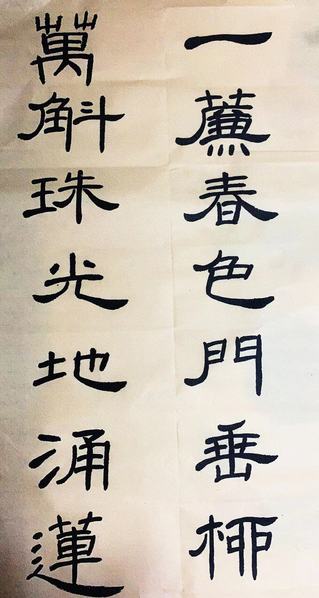 一簾春色門垂柳
萬斛珠光地涌蓮